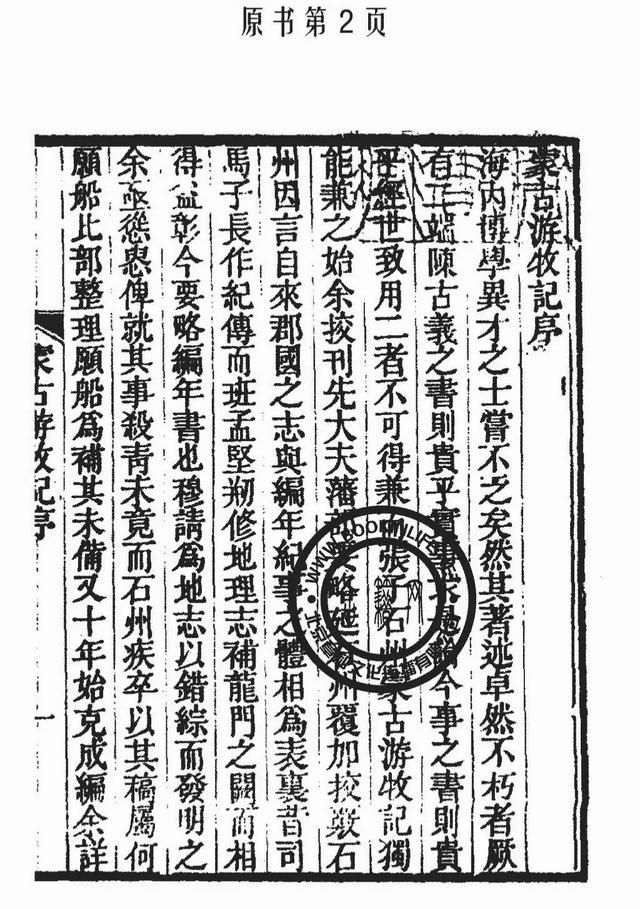 原书第2页
蒙古游牧記序
海内博學異才之士嘗不乏矣然其著述卓然不朽者厥
有二端陳古義之書則貴乎實事求是論今事之書則貴
乎經世致用二者不可得兼而張子石州蒙古游牧記獨
能兼之始余挍刊先大夫藩部要略延石州覆加挍覈石
州因言自來郡國之志與編年紀事之體相為表裏昔司
馬子長作紀傳而班孟堅剏修地理志補龍門之闕而相
得益彰今要略編年書也穆請為地志以錯綜而發明之
余亟慫恿俾就其事殺青未竟而石州疾卒以其稿屬何
願船比部整理願船為補其未備又十年始克成編余詳
蒙古游牧記序
一
WWW.BOOK